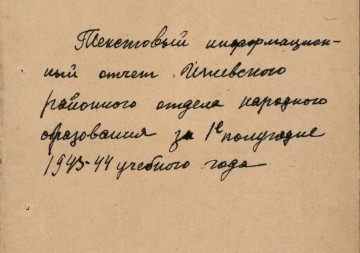 Текстовый информацион-
ный отчет Ижевского
районного отдела народного
образования за 1е полугодие
1943-44 учебного года